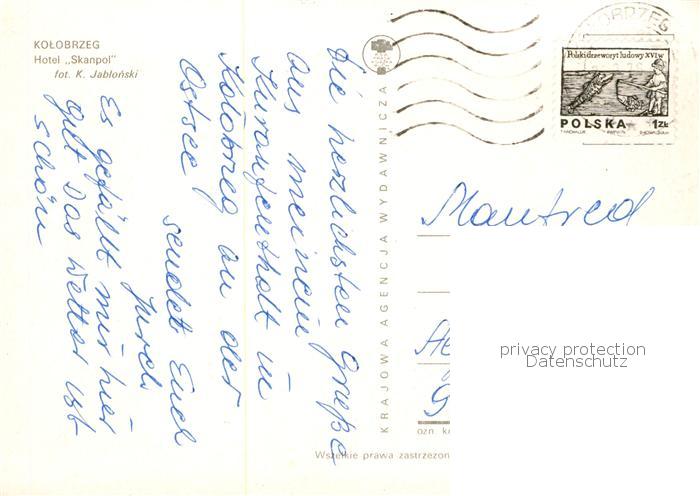 KOŁOBRZEG
Hotel „Skanpol"
fot. K. Jabłoński
Die herzlichsten Grüße
aus meinem
Kuraufenthalt in
Kołobrzeg an der
Ostsee sendet Euch
Es gefällt mir hier
gut Das Wetter ist
schön
KRAJOWA AGENCJA WYDAWNICZA
Polski drzeworyt ludowy XVI w.
POLSKA 1 ZŁ
Manfred
privacy protection
Datenschutz
Wszelkie prawa zastrzeżon